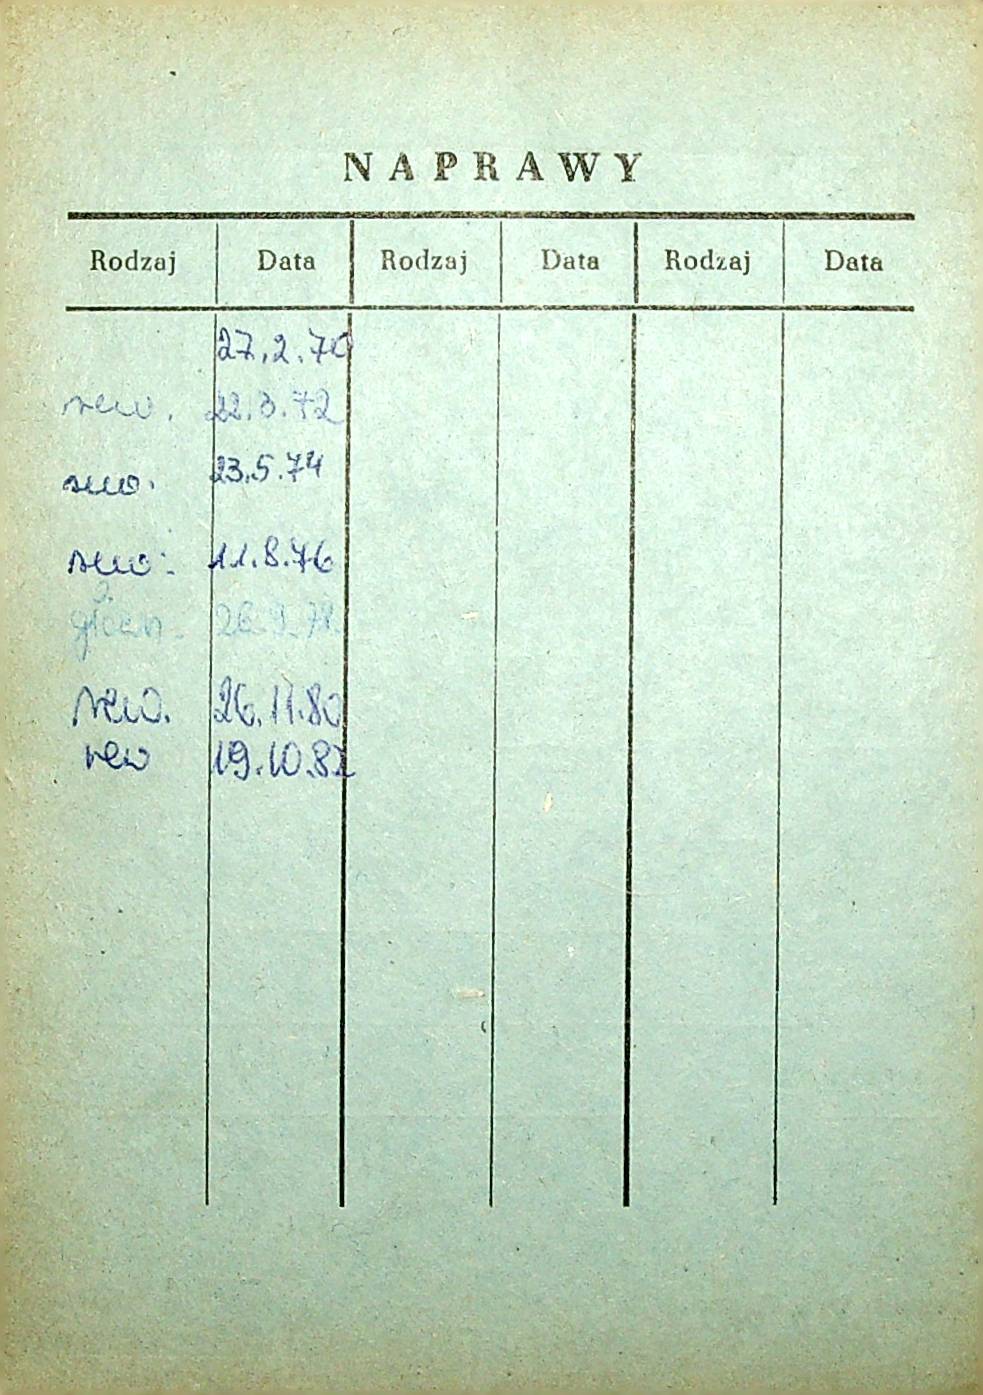 NAPRAWY
Rodzaj Data Rodzaj Data Rodzaj Data
27.2.70
rew. 22.3.72
rew. 23.5.74
rew. 11.8.76
główn. 26.9.78
rew. 26.11.80
rew 19.10.82